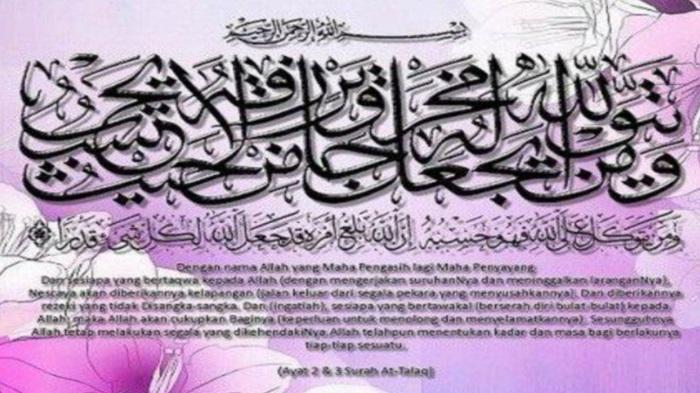 بسم الله الرحمن الرحيم
ومن يتق الله يجعل له مخرجا ويرزقه من حيث لا يحتسب
ومن يتوكل على الله فهو حسبه إن الله بلغ أمره قد جعل الله لكل شيء قدرا
Dengan nama Allah yang Maha Pengasih lagi Maha Penyayang
Dan sesiapa yang bertaqwa kepada Allah (dengan mengerjakan suruhanNya dan meninggalkan laranganNya),
Nescaya akan diberikannya kelapangan (jalan keluar dari segala pekara yang menyusahkannya). Dan diberikannya
rezeki yang tidak Disangka-sangka. Dan (ingatlah), sesiapa yang bertawakal (berserah diri bulat-bulat) kepada
Allah, maka Allah akan cukupkan Baginya (keperluan untuk menolong dan menyelamatkannya). Sesungguhnya
Allah tetap melakukan segala yang dikehendakiNya. Allah telahpun menentukan kadar dan masa bagi berlakunya
tiap-tiap sesuatu.
(Ayat 2 & 3 Surah At-Talaq)